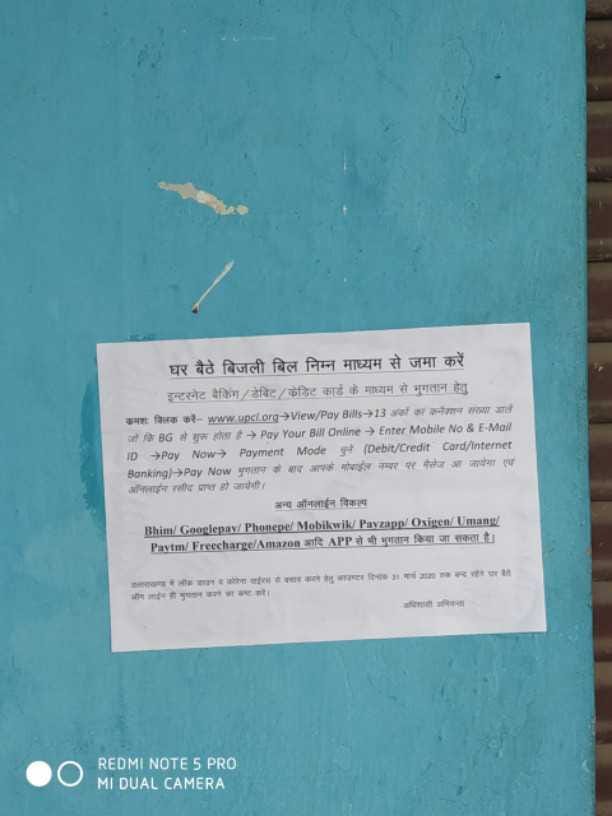 घर बैठे बिजली बिल निम्न माध्यम से जमा करें
इन्टरनेट बैकिंग/डेबिट/केडिट कार्ड के माध्यम से भुगतान हेतु
क्रमशः क्लिक करें– www.upcl.org→View/Pay Bills→13 अंकों का कनैक्शन संख्या डाले
जो कि BG से शुरू होता है → Pay Your Bill Online → Enter Mobile No & E-Mail
ID →Pay Now→ Payment Mode चुनें (Debit/Credit Card/Internet
Banking)→Pay Now भुगतान के बाद आपके मोबाईल नम्बर पर मैसेज आ जायेगा एवं
ऑनलाईन रसीद प्राप्त हो जायेगी।
अन्य ऑनलाईन विकल्प
Bhim/ Googlepay/ Phonepe/ Mobikwik/ Payzapp/ Oxigen/ Umang/
Paytm/ Freecharge/Amazon आदि APP से भी भुगतान किया जा सकता है।
उत्तराखण्ड में लॉक डाउन व कोरोना वाईरस से बचाव करने हेतु काउण्टर दिनांक 31 मार्च 2020 तक बन्द रहेंगे घर बैठे
ऑन लाईन ही भुगतान करने का कष्ट करें।
अधिशासी अभियन्ता
REDMI NOTE 5 PRO
MI DUAL CAMERA